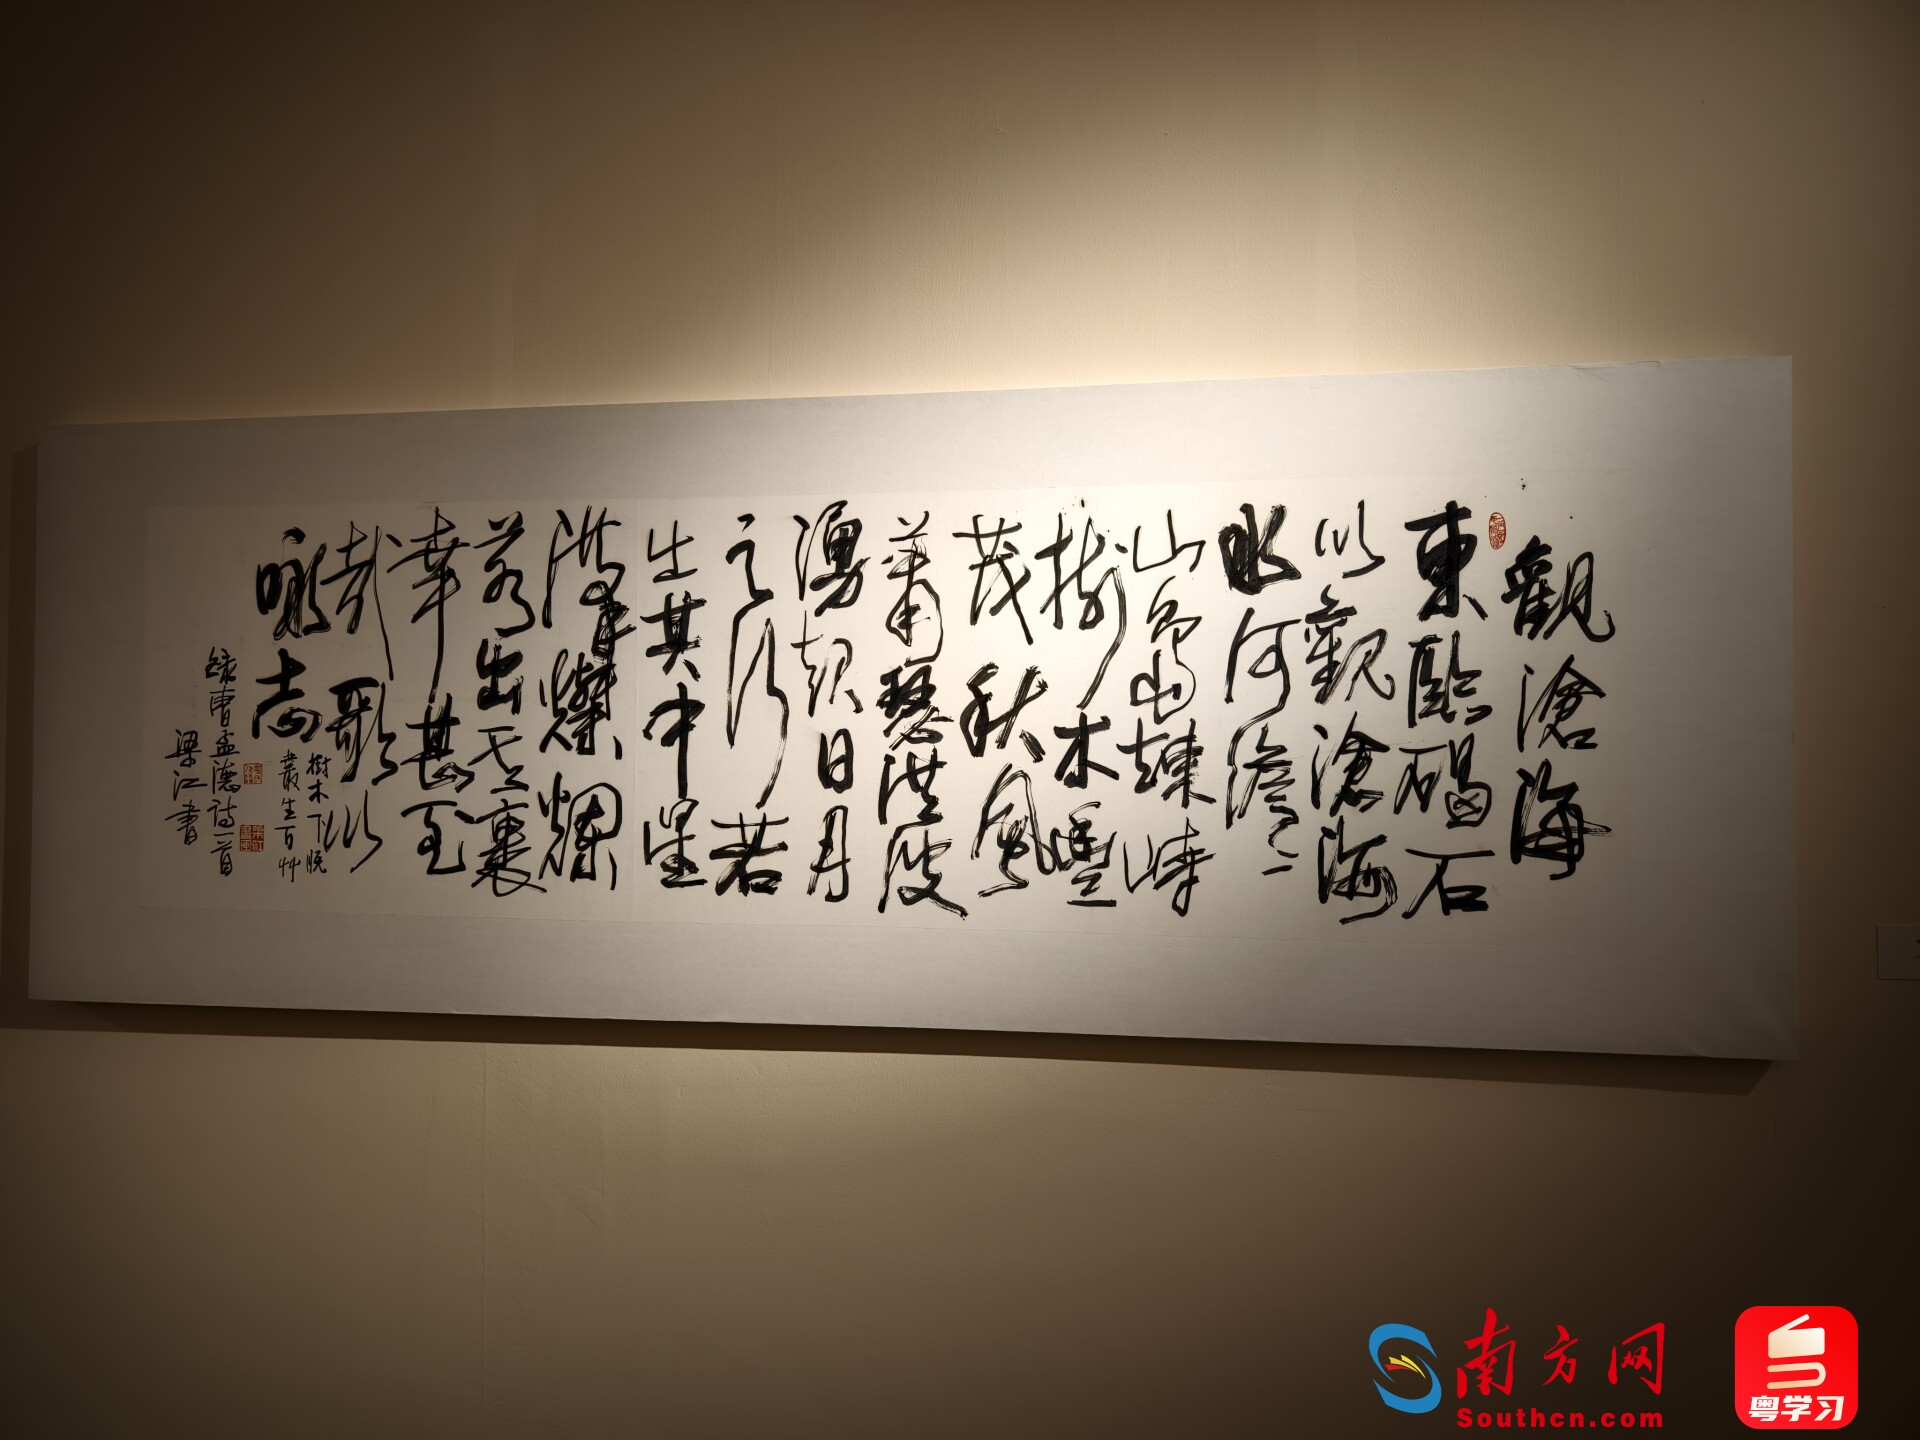 觀滄海
東臨碣石
以觀滄海
水何澹〻
山島竦峙
樹木豐
茂秋風
蕭瑟洪波
湧起日月
之行若
出其中星
漢燦爛
若出其裏
幸甚至
哉歌以
咏志
樹木下脱
叢生百艸
錄曹孟德詩一首
梁江書
南方网
Southcn.com
粤学习